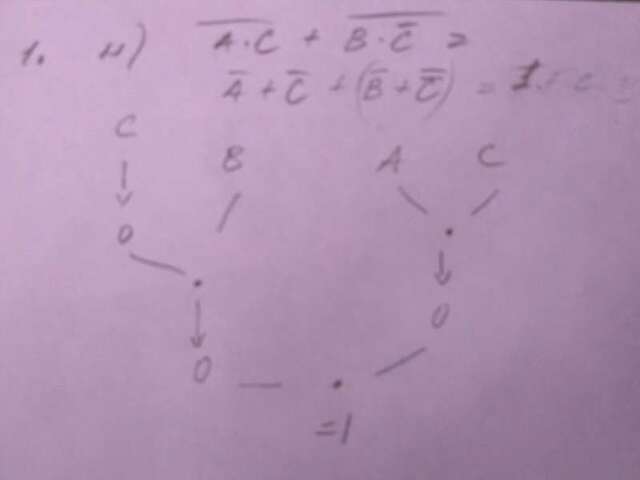 1. н) \overline{A·C} + \overline{B·\overline{C}} =
\overline{A} + \overline{C} + (\overline{B} + \overline{\overline{C}}) = 1
C
B A C
0 ·
· 0
0 ·
=1